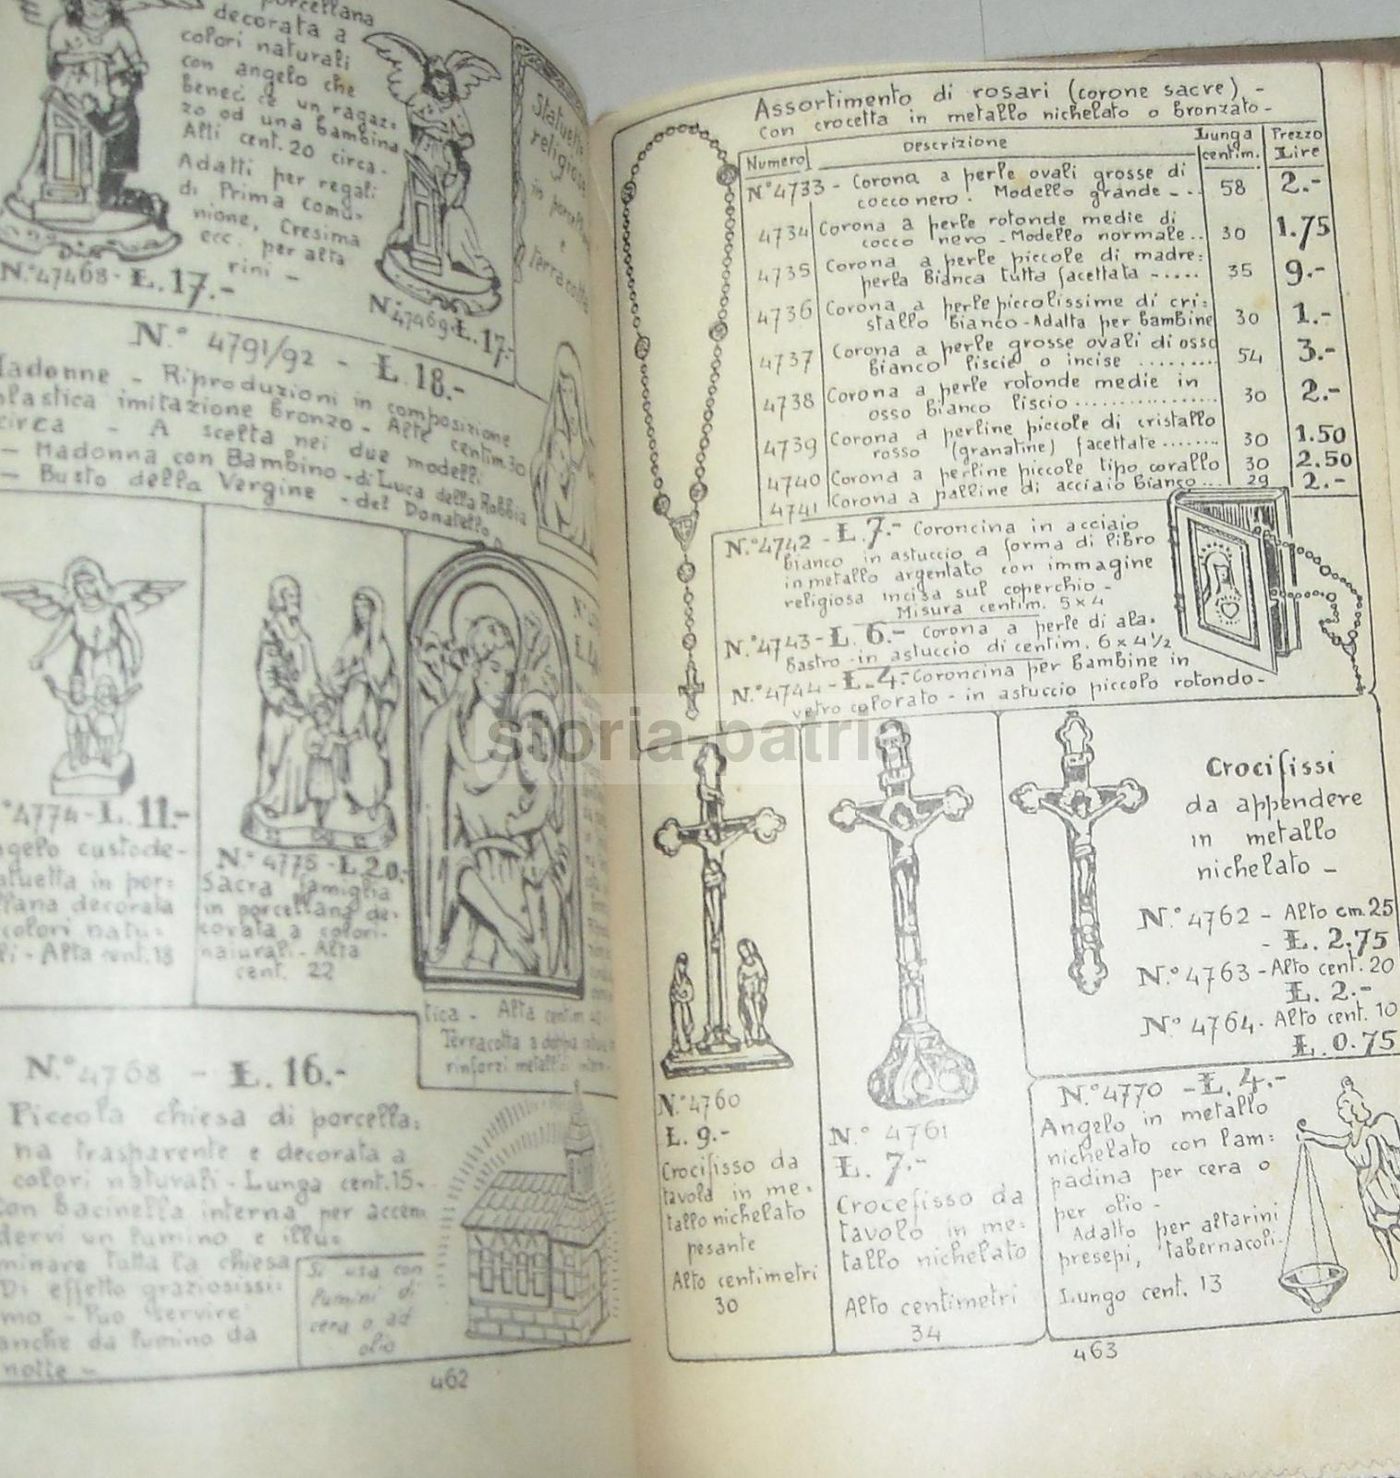 porcellana
decorata a
colori naturali
con angelo che
benedice un ragaz:
zo od una bambina.
Alti cent. 20 circa.
Adatti per regali
di Prima comu-
nione, Cresima
ecc. per alta
rini -
N.º 47468 - L. 17.-
N.º 47469 - L. 17.-
Statuette
religiose
in porcellana
e
terracotta
N.º 4791/92 - L. 18.-
Madonne - Riproduzioni in composizione
plastica imitazione bronzo - Alte centim. 30
circa - A scelta nei due modelli
- Madonna con Bambino - di Luca della Robbia
- Busto della Vergine - del Donatello
N.º 4774 - L. 11.-
Angelo custode -
statuetta in por:
cellana decorata
colori natu-
li - Alta cent. 18
N.º 4775 - L. 20.-
Sacra famiglia
in porcellana de-
corata a colori
naturali - Alta
cent. 22
tica - Alta centim
Terracotta a doppia
rinforzi metallici
N.º 4768 - L. 16.-
Piccola chiesa di porcella:
na trasparente e decorata a
colori naturali - Lunga cent. 15 -
Con bacinella interna per accen
dervi un lumino e illu-
minare tutta la chiesa
Di effetto graziosissi:
mo - Puo' servire
anche da lumino da
notte -
Si usa con
lumini di
cera o ad
olio
462
Assortimento di rosari (corone sacre) -
con crocetta in metallo nichelato o bronzato -
Numero Descrizione Lunga centim. Prezzo Lire
N.º 4733 - Corona a perle ovali grosse di
cocco nero. Modello grande - .. 58 2.-
4734 Corona a perle rotonde medie di
cocco nero - Modello normale .. 30 1.75
4735 Corona a perle piccole di madre:
perla bianca tutta faccettata - ..... 35 9.-
4736 Corona a perle piccolissime di cri:
stallo bianco - Adatta per bambine 30 1.-
4737 Corona a perle grosse ovali di osso
bianco liscie o incise ......... 54 3.-
4738 Corona a perle rotonde medie in
osso bianco liscio ............... 30 2.-
4739 Corona a perline piccole di cristallo
rosso (granatine) faccettate ....... 30 1.50
4740 Corona a perline piccole tipo corallo 30 2.50
4741 Corona a palline di acciaio bianco ... 29 2.-
N.º 4742 - L. 7.- Coroncina in acciaio
bianco in astuccio a forma di libro
in metallo argentato con immagine
religiosa incisa sul coperchio -
Misura centim. 5 x 4
N.º 4743 - L. 6.- Corona a perle di ala-
bastro - in astuccio di centim. 6 x 4 1/2
N.º 4744 - L. 4.- Coroncina per bambine in
vetro colorato - in astuccio piccolo rotondo -
storia-patria
Crocifissi
da appendere
in metallo
nichelato -
N.º 4762 - Alto cm. 25
- L. 2.75
N.º 4763 - Alto cent. 20
L. 2.-
N.º 4764 - Alto cent. 10
L. 0.75
N.º 4760
L. 9.-
Crocifisso da
tavola in me-
tallo nichelato
pesante
Alto centimetri
30
N.º 4761
L. 7.-
Crocefisso da
tavolo in me-
tallo nichelato
Alto centimetri
34
N.º 4770 - L. 4.-
Angelo in metallo
nichelato con lam:
padina per cera o
per olio -
Adatto per altarini
presepi, tabernacoli -
Lungo cent. 13
463